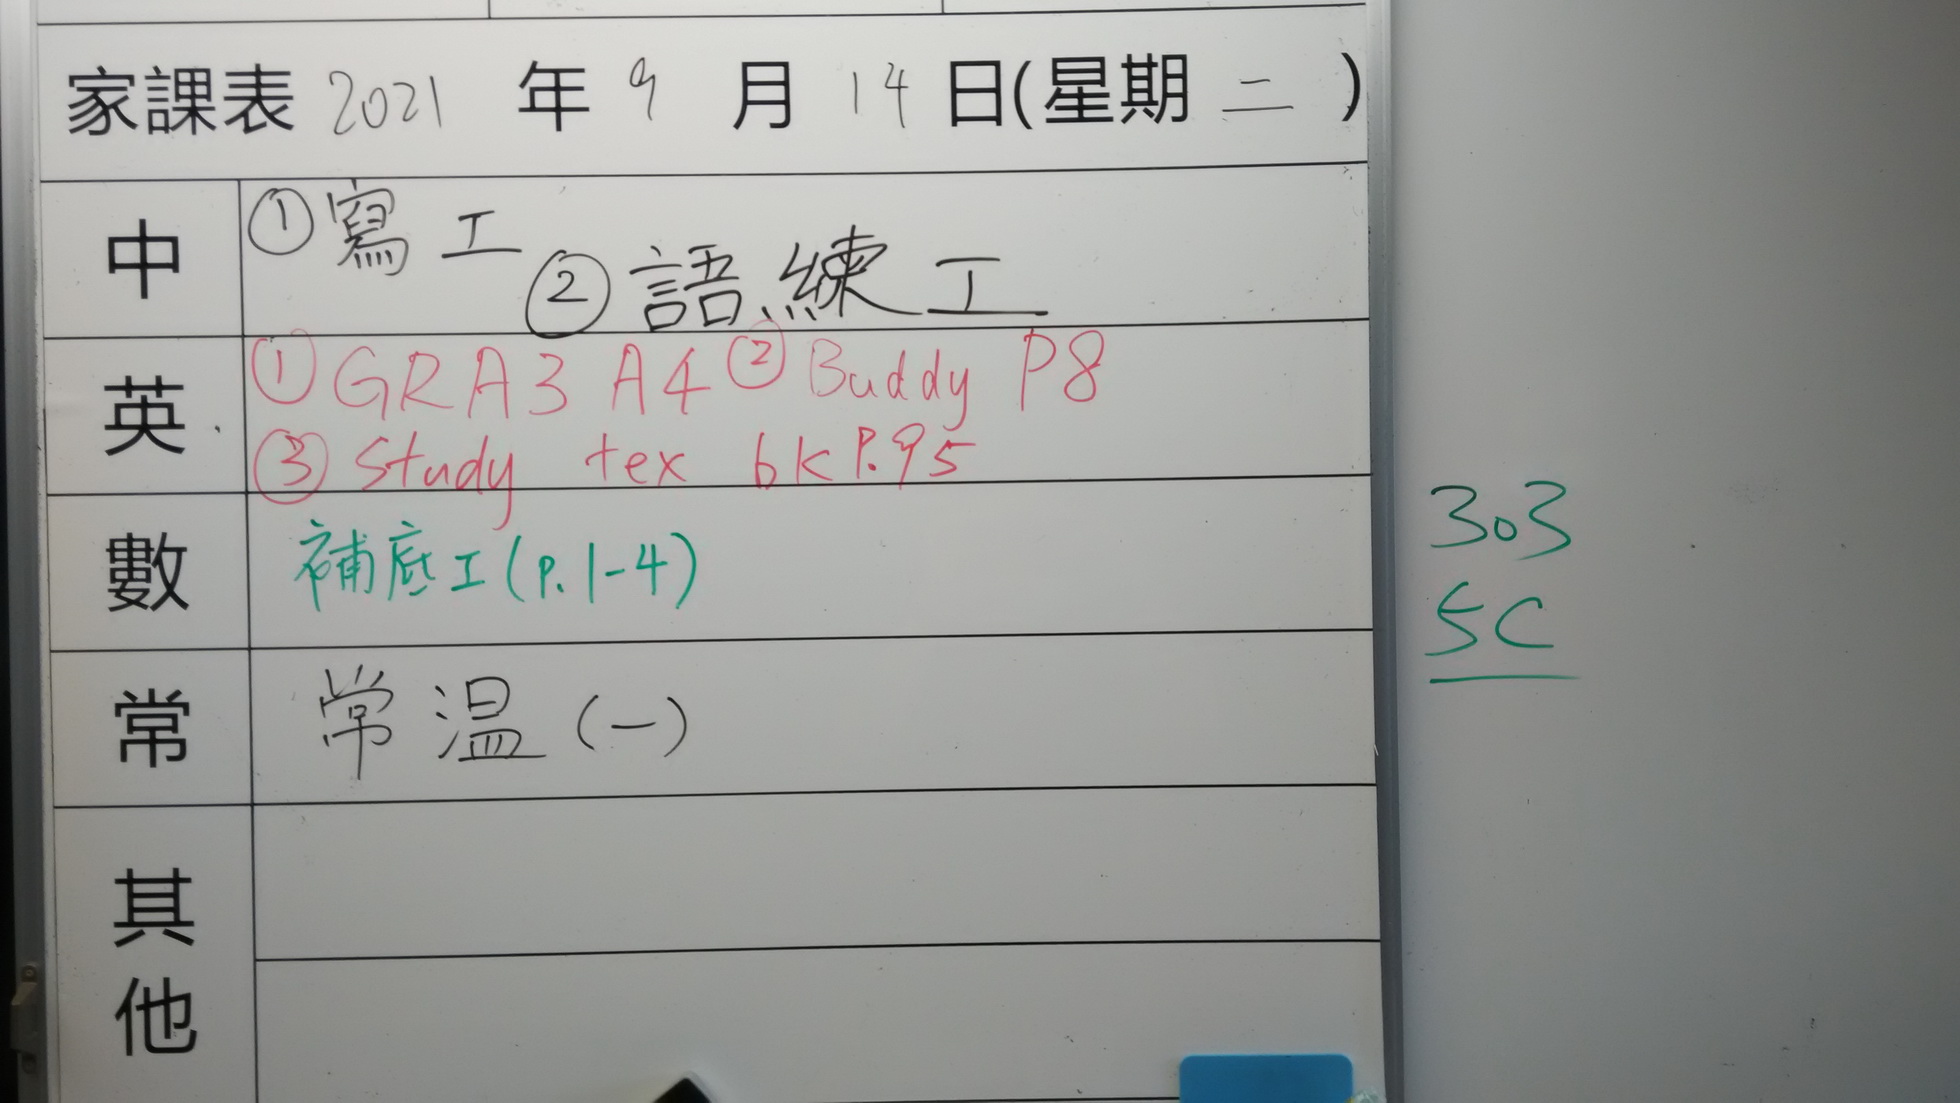 家課表 2021 年 9 月 14 日(星期 二 )
中 ①寫工 ②語練工
英 ①GRA3 A4 ②Buddy P8
③Study tex bk P.95
數 補底工(P.1-4)
常 常溫(一)
其他
303
5C